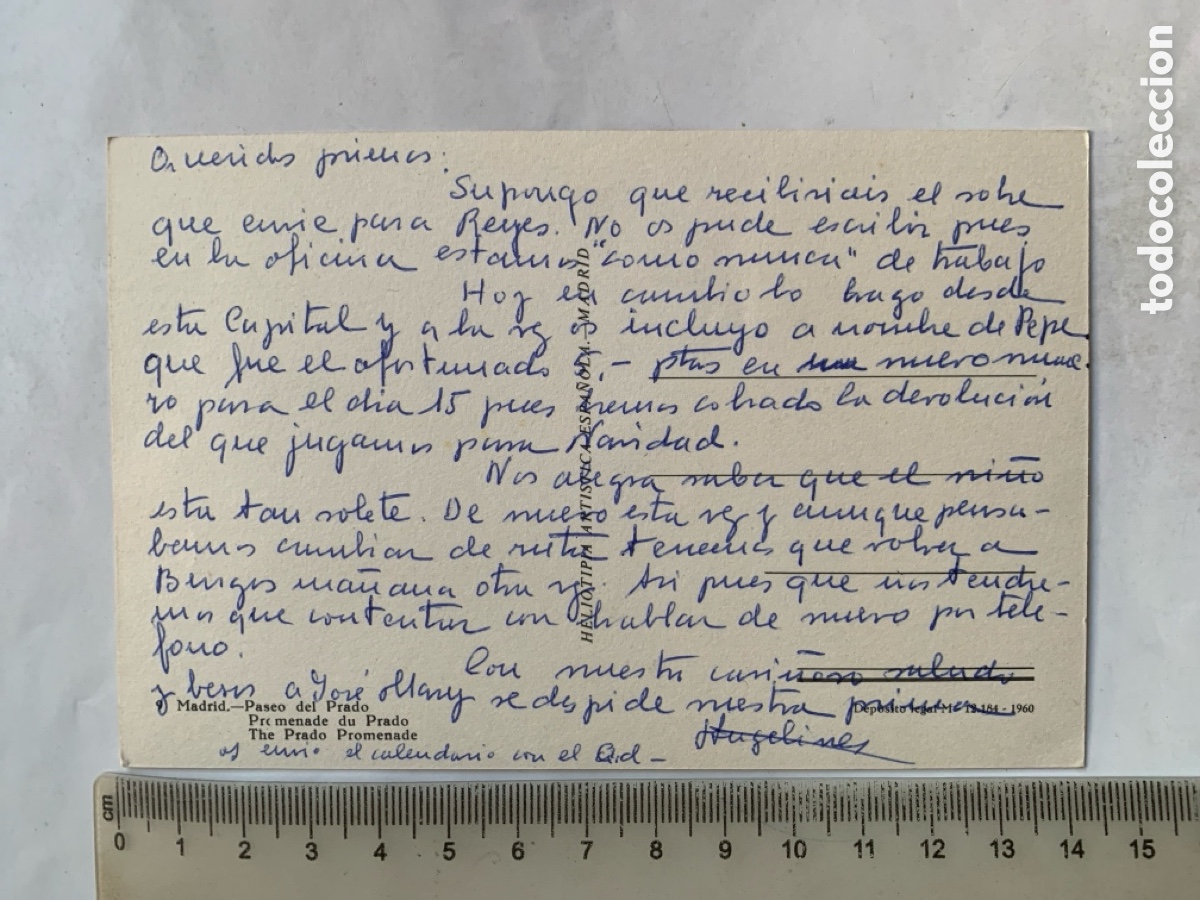 Queridos primos:
Supongo que recibiriais el sobre
que envie para Reyes. No os pude escribir pues
en la oficina estamos "como nunca" de trabajo
Hoy en cambio lo hago desde
esta Capital y a la vez os incluyo a nombre de Pepe
que fue el afortunado - ptas en nuevo nume
ro para el dia 15 pues hemos cobrado la devolución
del que jugamos para Navidad.
Nos alegra saber que el niño
esta tan solete. De nuevo esta vez y aunque pensa-
bamos cambiar de ruta tenemos que volver a
Burgos mañana otra vez. Asi pues que nos tendre-
mos que contentar con hablar de nuevo por telé-
fono.
Con nuestro cariñoso saludo
y besos a José Mary se despide vuestra prima
Angelines
os envio el calendario con el
Madrid.—Paseo del Prado
Promenade du Prado
The Prado Promenade
HELIOTIPIA ARTISTICA ESPAÑOLA.-MADRID
Depósito legal M. 12.184 - 1960
todocoleccion
cm
0 1 2 3 4 5 6 7 8 9 10 11 12 13 14 15